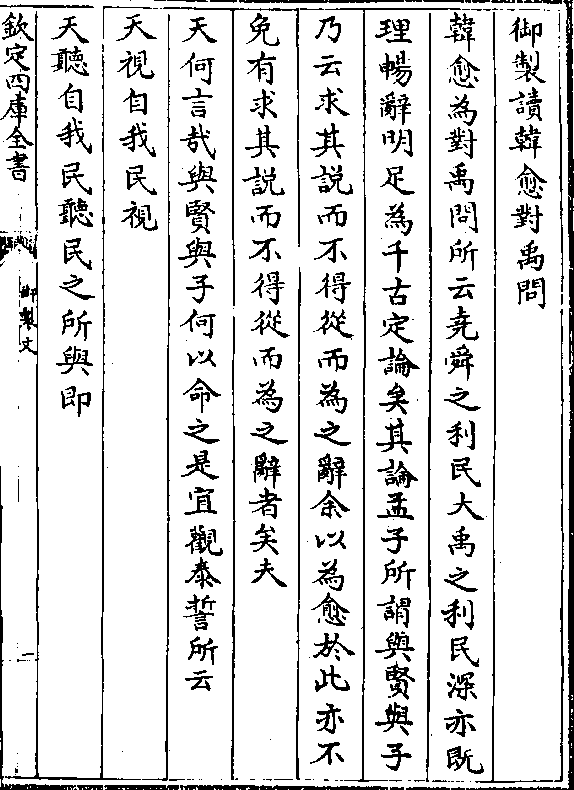 御製讀韓愈對禹問
韓愈為對禹問所云堯舜之利民大禹之利民深亦既
理暢辭明足為千古定論矣其論孟子所謂與賢與子
乃云求其說而不得從而為之辭余以為愈於此亦不
免有求其說而不得從而為之辭者矣夫
天何言哉與賢與子何以命之是宜觀泰誓所云
天視自我民視
天聽自我民聽民之所與即
欽定四庫全書
御製文
一